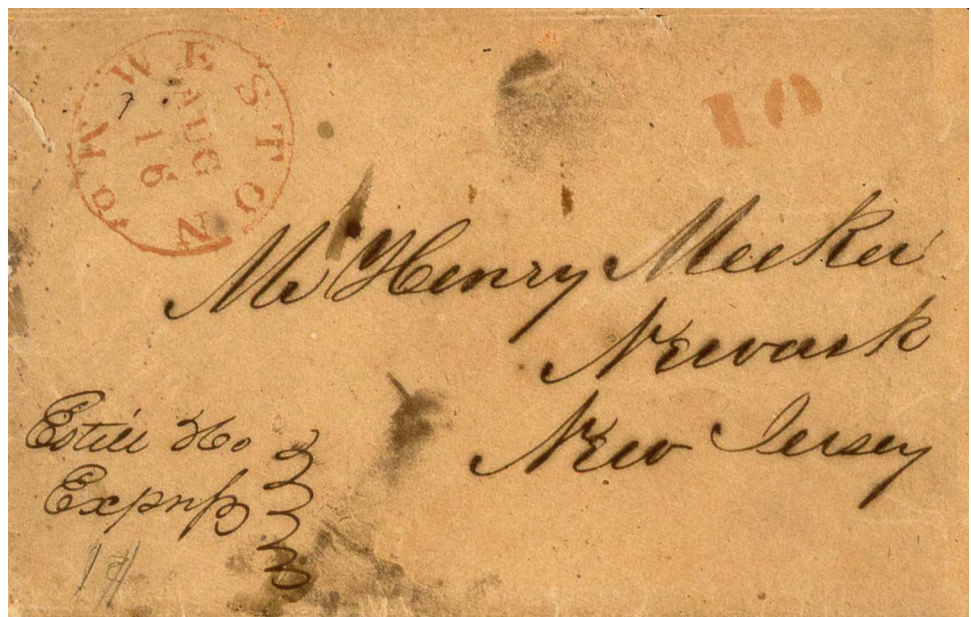 WESTON Mo
AUG
16
10
Mr Henry Meeker
Newark
New Jersey
Estill &Co
Express